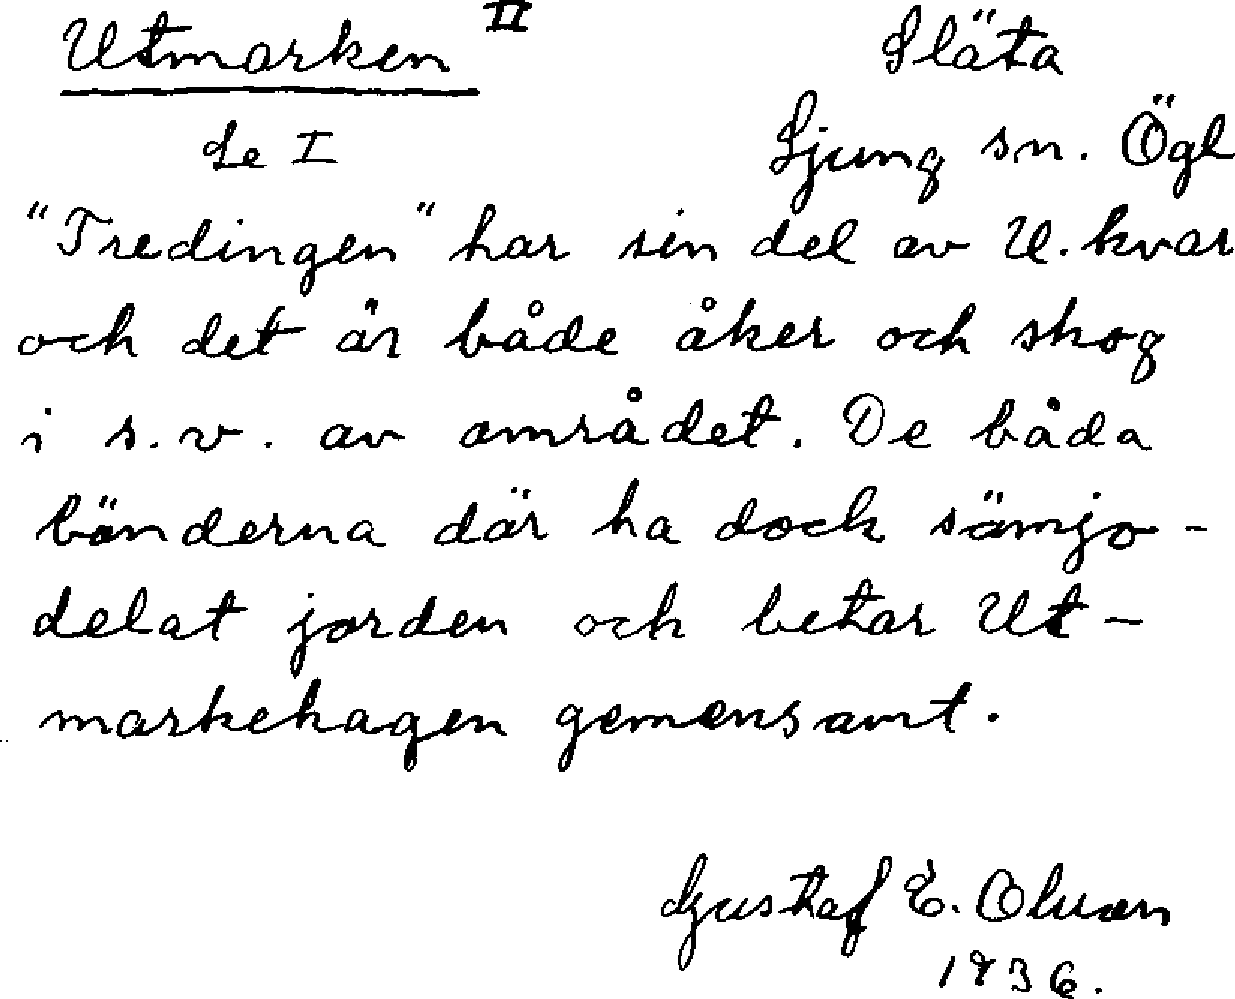 Utmarken II
Släta
Se I
Ljung sn. Ögl
"Tredingen" har sin del av U. kvar
och det är både åker och skog
i s.v. av området. De båda
bönderna där ha dock sämjo-
delat jorden och betar Ut-
markehagen gemensamt.
Gustaf E.
1936.